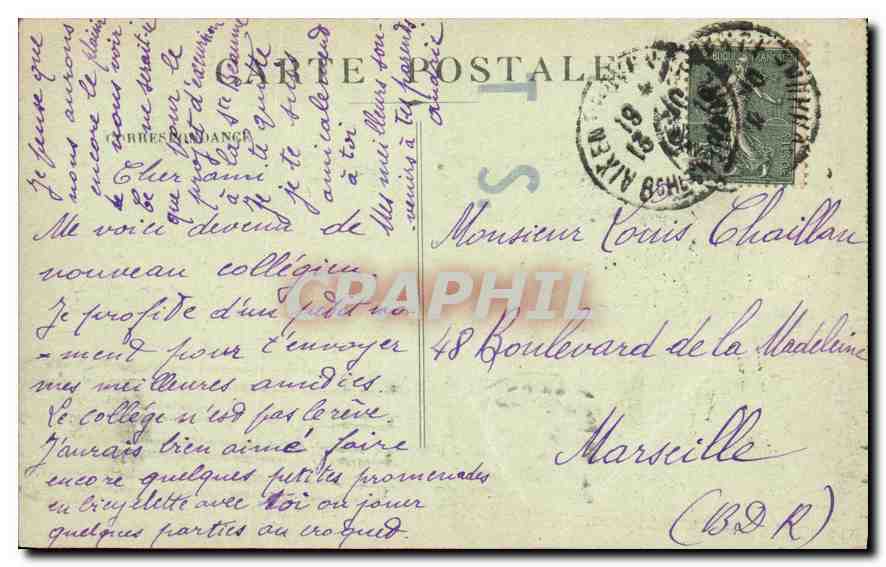 CARTE POSTALE
CORRESPONDANCE
Cher ami
Me voici devenu de
nouveau collégien.
Je profite d'un petit mo
-ment pour t'envoyer
mes meilleures amitiés.
Le collège n'est pas le rêve.
J'aurais bien aimé faire
encore quelques petites promenades
en bicyclette avec toi ou jouer
quelques parties au croquet.
Je pense que
nous aurons
encore le plaisir
de nous voir
ne serait-ce
que pour le
projet d'excursion
à la Ste Beaume
Je te quitte
je te suis
amicalement
à toi
Mes meilleurs sou-
-venirs à tes parents
T S
Monsieur Louis Chaillan
48 Boulevard de la Madeleine
Marseille
(B D R)
AIX EN
CPAPHIL